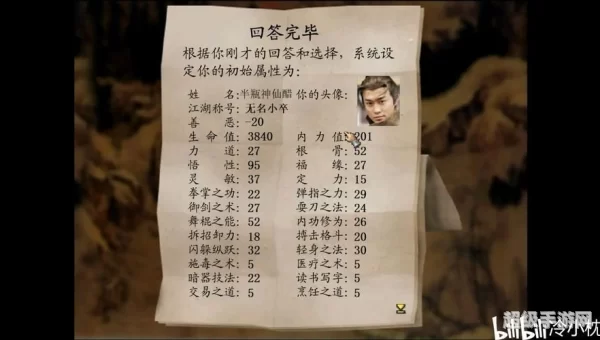 回答完毕
根据你刚才的回答和选择，系统设
定你的初始属性为：
姓 名:半瓶神仙醋 你的头像:
江湖称号:无名小卒
善 恶:-20
生 命 值: 3840 内 力 值: 201
力 道: 27 根 骨: 52
悟 性: 95 福 缘: 27
灵 敏: 37 定 力: 15
拳掌之功: 22 弹指之力: 29
御剑之术: 27 耍刀之法: 24
舞棍之能: 52 内功修为: 26
拆招卸力: 18 搏击格斗: 20
闪躲纵跃: 32 轻身之法: 30
施毒之术: 5 医疗之术: 5
暗器技法: 22 读书写字: 5
交易之道: 5 烹饪之道: 5
超级手游网
bilibili 冷小枕